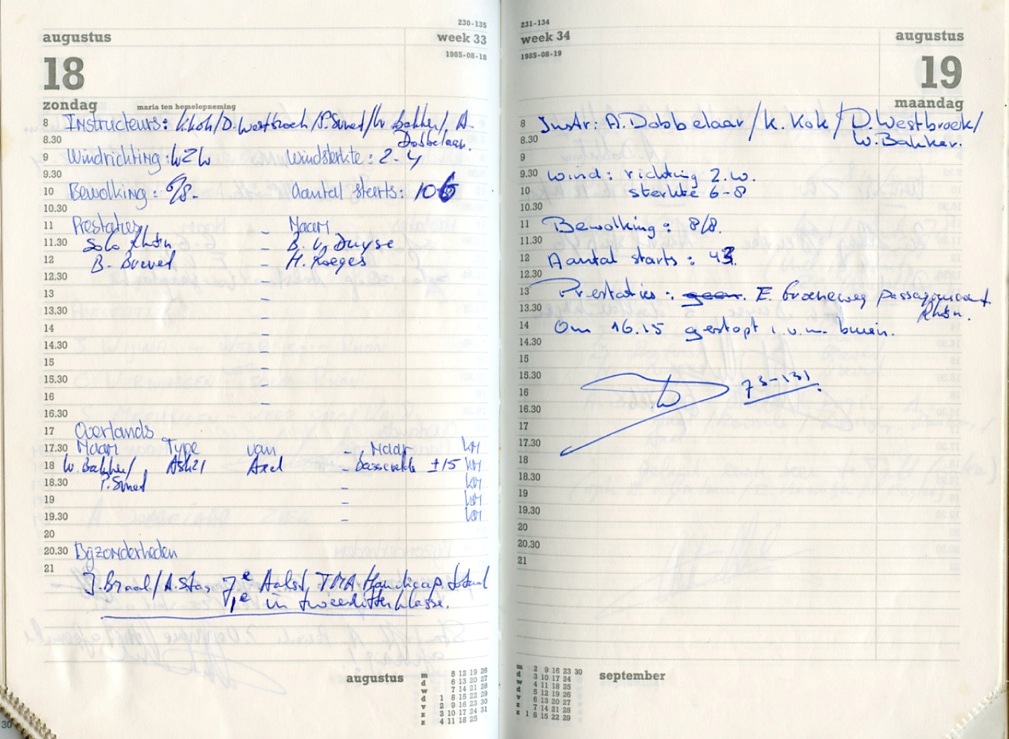 230-135
augustus week 33
1985-08-18
18
zondag maria ten hemelopneming
8 Instructeurs: K.Kok/D.Westbroek/P. /W. Bakker/A.
8.30 Dobbelaar.
9 Windrichting: WZW Windsterkte: 2-4
9.30
10 Bewolking: 6/8- Aantal starts: 106
10.30
11 Prestaties - Naam
11.30 Solo Rhön - B. v. Duyse
12 B. Brevet - H. Koeges
12.30 -
13 -
13.30 -
14 -
14.30 -
15 -
15.30 -
16 -
16.30
17 Overlands
17.30 Naam Type van - Naar KM
18 W. Bakker/ ASK21 Axel - Bassevelde ±15 KM
18.30 P. - KM
19 - KM
19.30 - KM
20
20.30 Bijzonderheden
21 J. Braal/A. Stas 7e Aalst, TMA Handicap totaal
7e in tweezitterklasse.
augustus
m 5 12 19 26
d 6 13 20 27
w 7 14 21 28
d 1 8 15 22 29
v 2 9 16 23 30
z 3 10 17 24 31
z 4 11 18 25
231-134
week 34 augustus
1985-08-19
19
maandag
8 Instr: A. Dobbelaar/K. Kok/D. Westbroek/
8.30 W. Bakker.
9
9.30 Wind: richting Z.W.
10 sterkte 6-8
10.30
11 Bewolking: 8/8.
11.30
12 Aantal starts: 43
12.30
13 Prestaties: geen. E. Groeneweg passagiersvlucht
13.30 Rhön.
14 Om 16.15 gestopt i.v.m. buien.
14.30
15
15.30
16 73-131
16.30
17
17.30
18
18.30
19
19.30
20
20.30
21
september
m 2 9 16 23 30
d 3 10 17 24
w 4 11 18 25
d 5 12 19 26
v 6 13 20 27
z 7 14 21 28
z 1 8 15 22 29
30